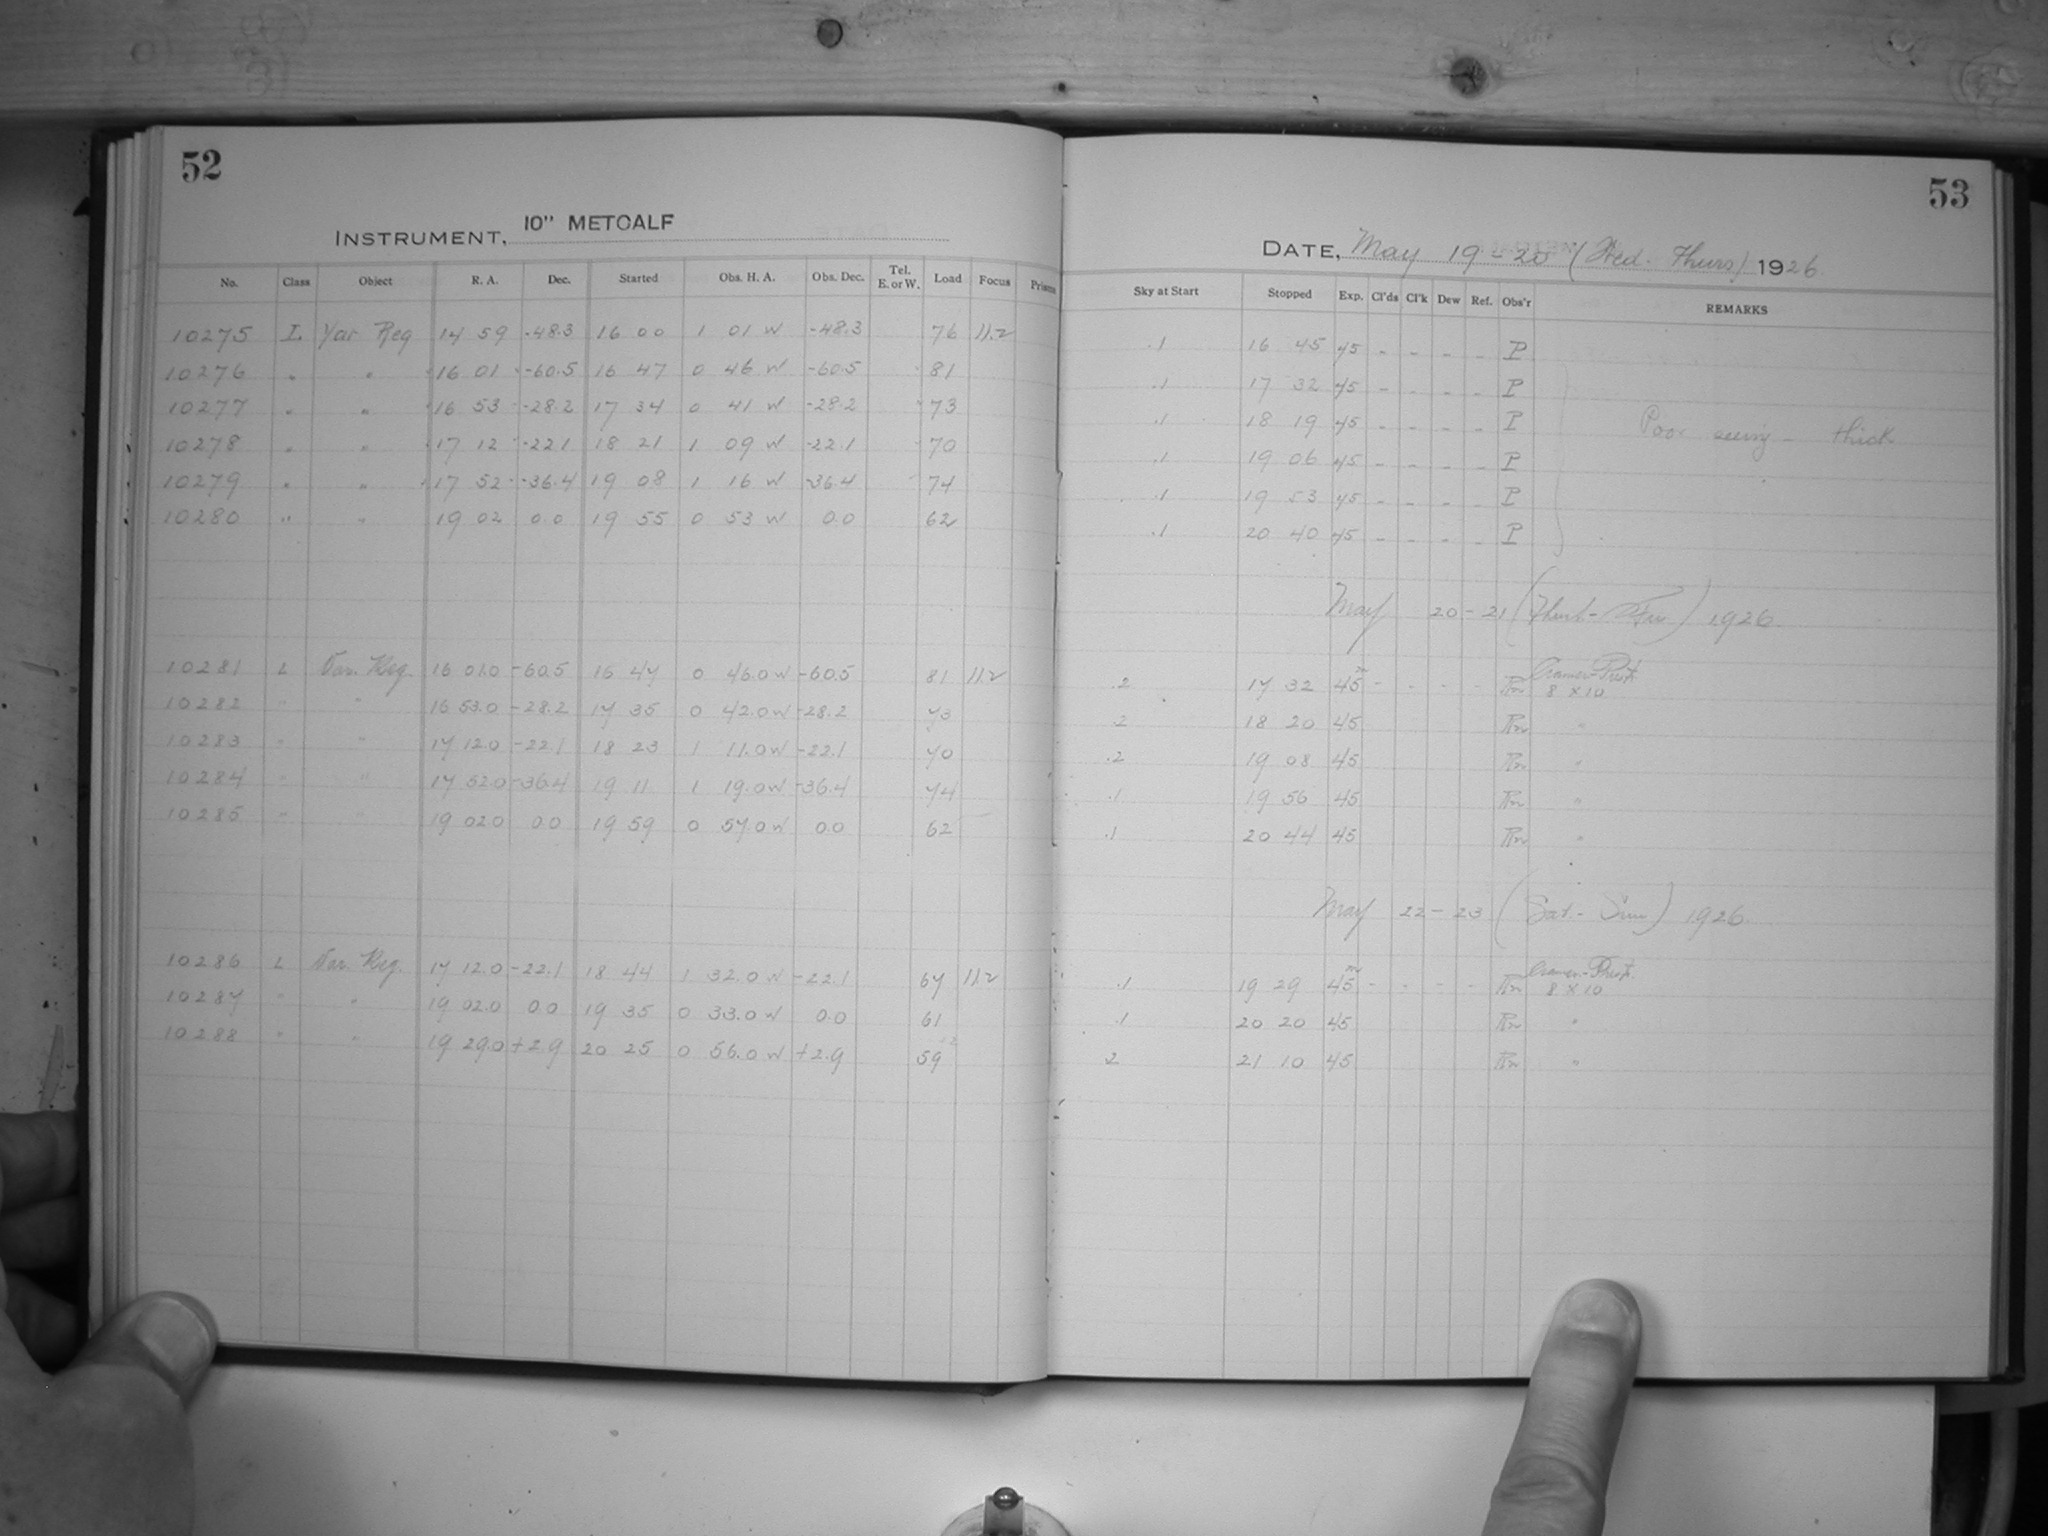 52
INSTRUMENT, 10" METCALF
No. Class Object R. A. Dec. Started Obs. H. A. Obs. Dec. Tel. E. or W. Load Focus Prisms
10275 L Var Reg 14 59 -48.3 16 00 1 01 W -48.3 76 11.2
10276 " " 16 01 -60.5 16 47 0 46 W -60.5 81
10277 " " 16 53 -28.2 17 34 0 41 W -28.2 73
10278 " " 17 12 -22.1 18 21 1 09 W -22.1 70
10279 " " 17 52 -36.4 19 08 1 16 W -36.4 74
10280 " " 19 02 0.0 19 55 0 53 W 0.0 62
10281 L Var. Reg. 16 01.0 -60.5 16 47 0 46.0 W -60.5 81 11.2
10282 " " 16 53.0 -28.2 17 35 0 42.0 W -28.2 73
10283 " " 17 12.0 -22.1 18 23 1 11.0 W -22.1 70
10284 " " 17 52.0 -36.4 19 11 1 19.0 W -36.4 74
10285 " " 19 02.0 0.0 19 59 0 57.0 W 0.0 62
10286 L Var. Reg. 17 12.0 -22.1 18 44 1 32.0 W -22.1 67 11.2
10287 " " 19 02.0 0.0 19 35 0 33.0 W 0.0 61
10288 " " 19 29.0 +2.9 20 25 0 56.0 W +2.9 59
53
DATE, May 19-20 (Wed. Thurs) 1926
Sky at Start Stopped Exp. Cl'ds Cl'k Dew Ref. Obs'r REMARKS
.1 16 45 45 - - - - P
.1 17 32 45 - - - - P
.1 18 19 45 - - - - P Poor seeing - thick
.1 19 06 45 - - - - P
.1 19 53 45 - - - - P
.1 20 40 45 - - - - P
May 20-21 (Thurs-Fri) 1926
.2 17 32 45m - - - - 8 x 10
.2 18 20 45 "
.2 19 08 45 "
.1 19 56 45 "
.1 20 44 45 "
May 22-23 (Sat.-Sun) 1926.
.1 19 29 45m - - - - 8 x 10
.1 20 20 45 "
.2 21 10 45 "